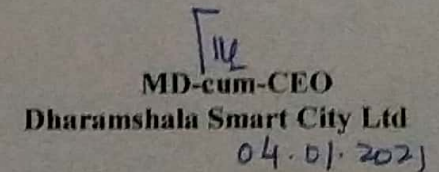 MD-cum-CEO
Dharamshala Smart City Ltd
04.01.2021